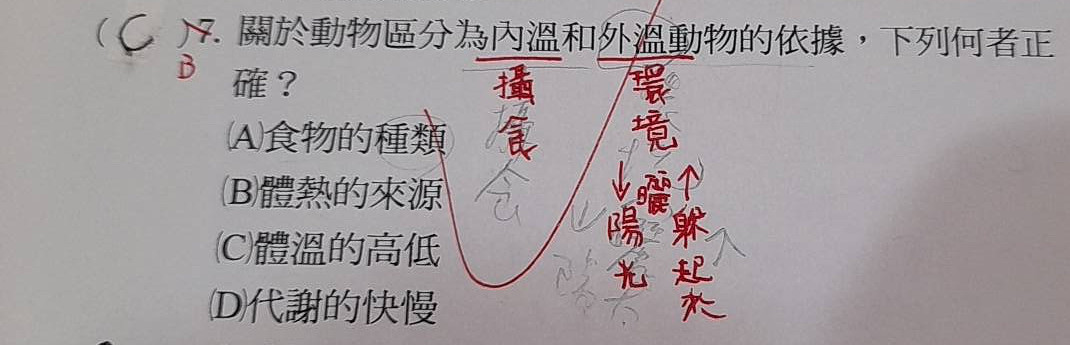 (C)7. 關於動物區分為內溫和外溫動物的依據，下列何者正
B 確？
攝食
環境
(A)食物的種類
(B)體熱的來源
↓曬陽光
↑躲起來
(C)體溫的高低
(D)代謝的快慢